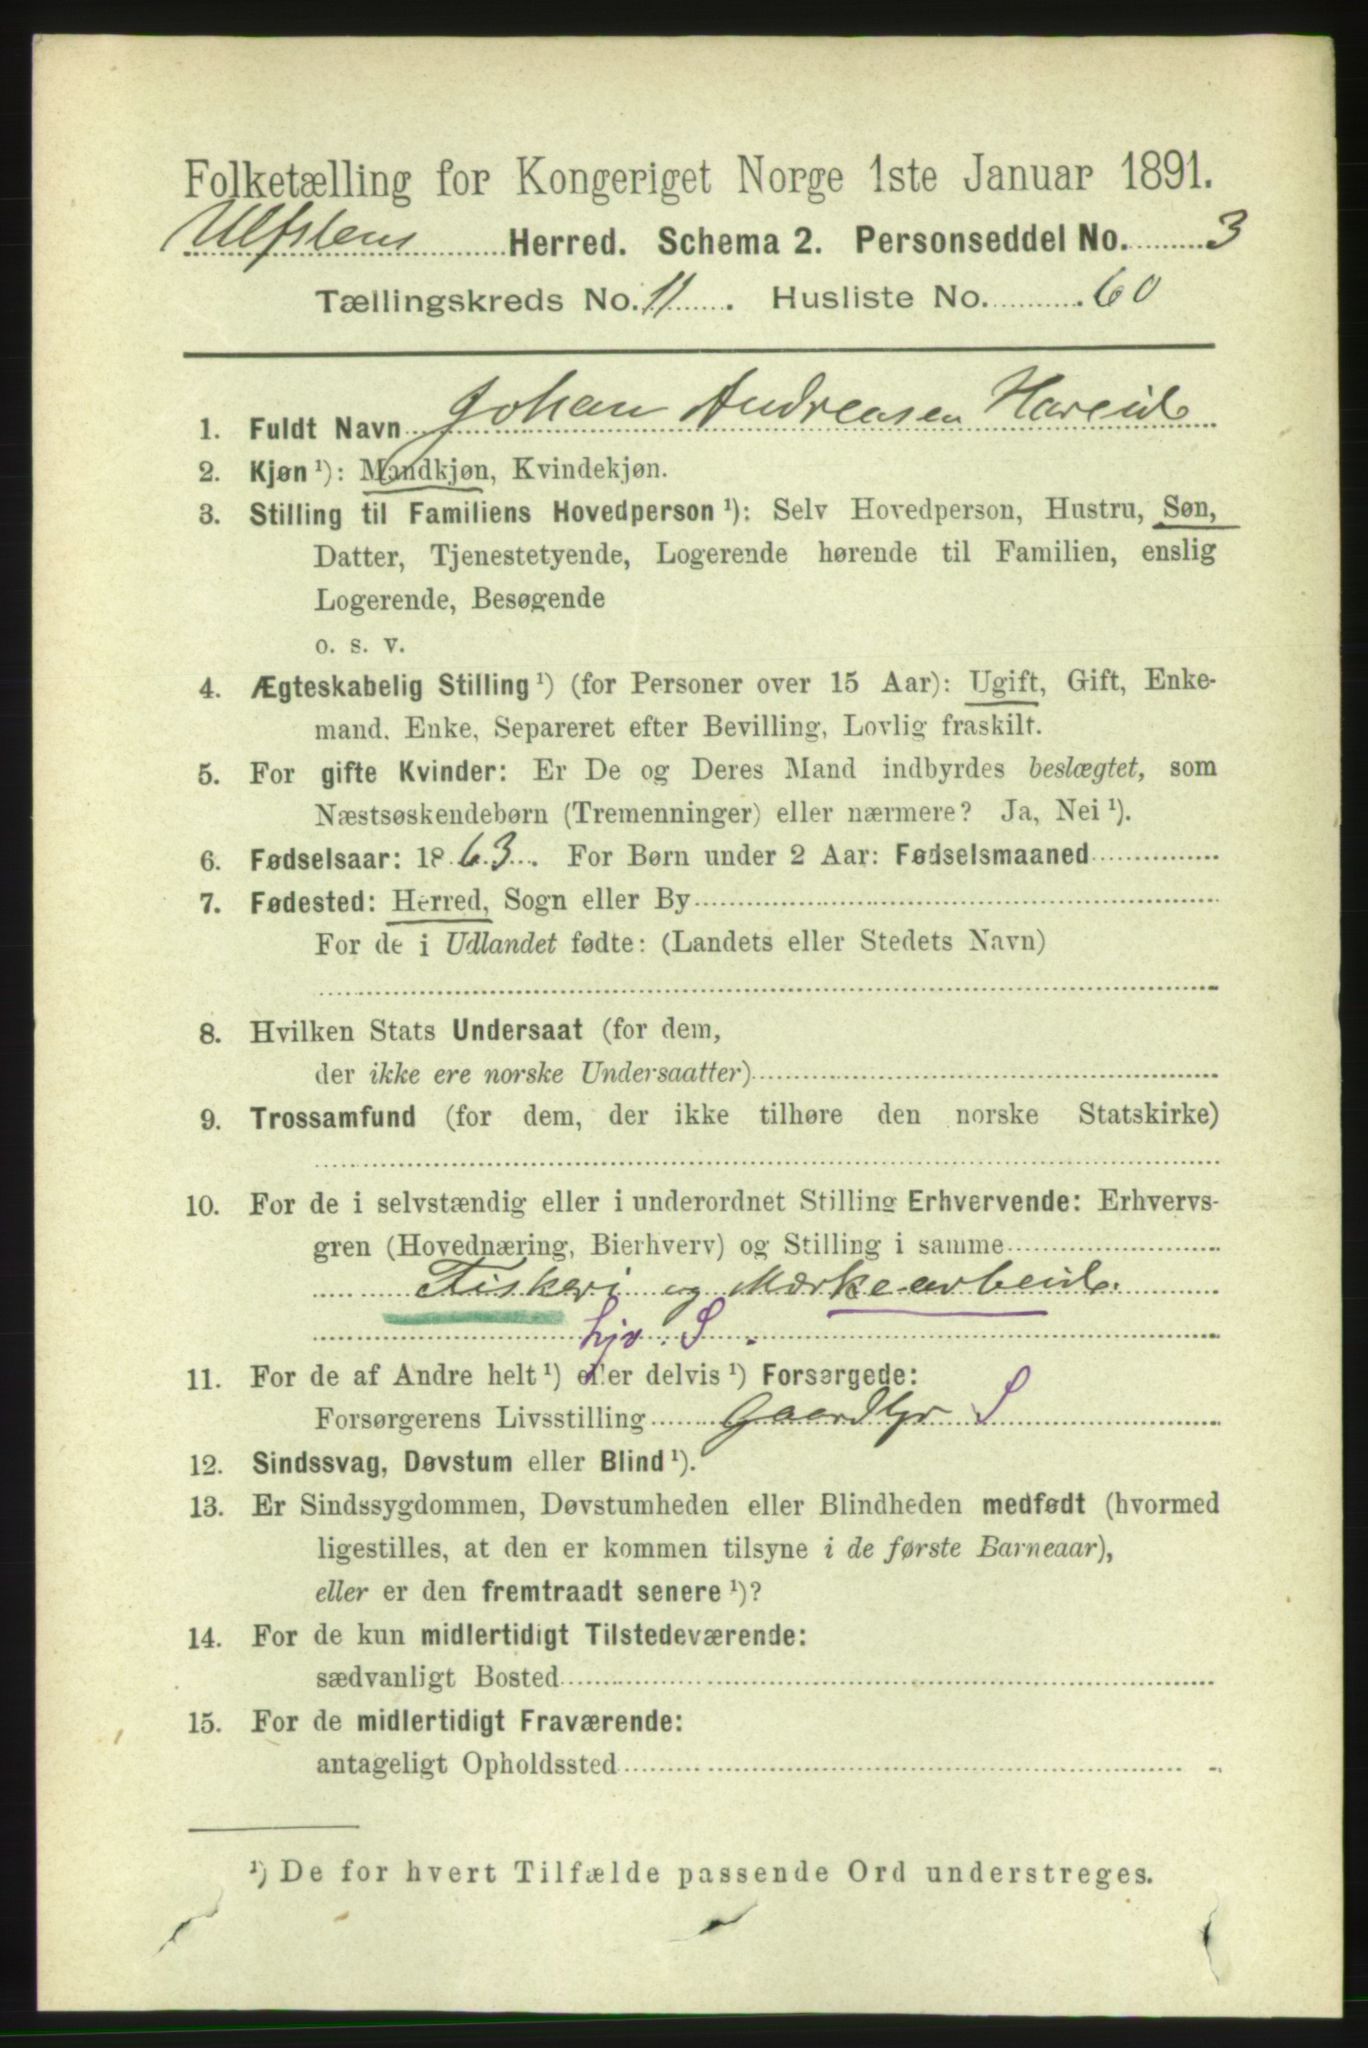 Folketælling for Kongeriget Norge 1ste Januar 1891.
Ulfsten Herred. Schema 2. Personseddel No. 3
Tællingskreds No. 11. Husliste No. 60
1. Fuldt Navn Johan Andreasen Hareid
2. Kjøn ¹): Mandkjøn, Kvindekjøn.
3. Stilling til Familiens Hovedperson ¹): Selv Hovedperson, Hustru, Søn,
Datter, Tjenestetyende, Logerende hørende til Familien, enslig
Logerende, Besøgende
o. s. v.
4. Ægteskabelig Stilling ¹) (for Personer over 15 Aar): Ugift, Gift, Enke-
mand, Enke, Separeret efter Bevilling, Lovlig fraskilt.
5. For gifte Kvinder: Er De og Deres Mand indbyrdes beslægtet, som
Næstsøskendebørn (Tremenninger) eller nærmere? Ja, Nei ¹).
6. Fødselsaar: 1863. For Børn under 2 Aar: Fødselsmaaned
7. Fødested: Herred, Sogn eller By
For de i Udlandet fødte: (Landets eller Stedets Navn)
8. Hvilken Stats Undersaat (for dem,
der ikke ere norske Undersaatter)
9. Trossamfund (for dem, der ikke tilhøre den norske Statskirke)
10. For de i selvstændig eller i underordnet Stilling Erhvervende: Erhvervs-
gren (Hovednæring, Bierhverv) og Stilling i samme
Fiskeri og Markearbeide.
hjv. S.
11. For de af Andre helt ¹) eller delvis ¹) Forsørgede:
Forsørgerens Livsstilling Gaardbr S
12. Sindssvag, Døvstum eller Blind ¹).
13. Er Sindssygdommen, Døvstumheden eller Blindheden medfødt (hvormed
ligestilles, at den er kommen tilsyne i de første Barneaar),
eller er den fremtraadt senere ¹)?
14. For de kun midlertidigt Tilstedeværende:
sædvanligt Bosted
15. For de midlertidigt Fraværende:
antageligt Opholdssted
¹) De for hvert Tilfælde passende Ord understreges.